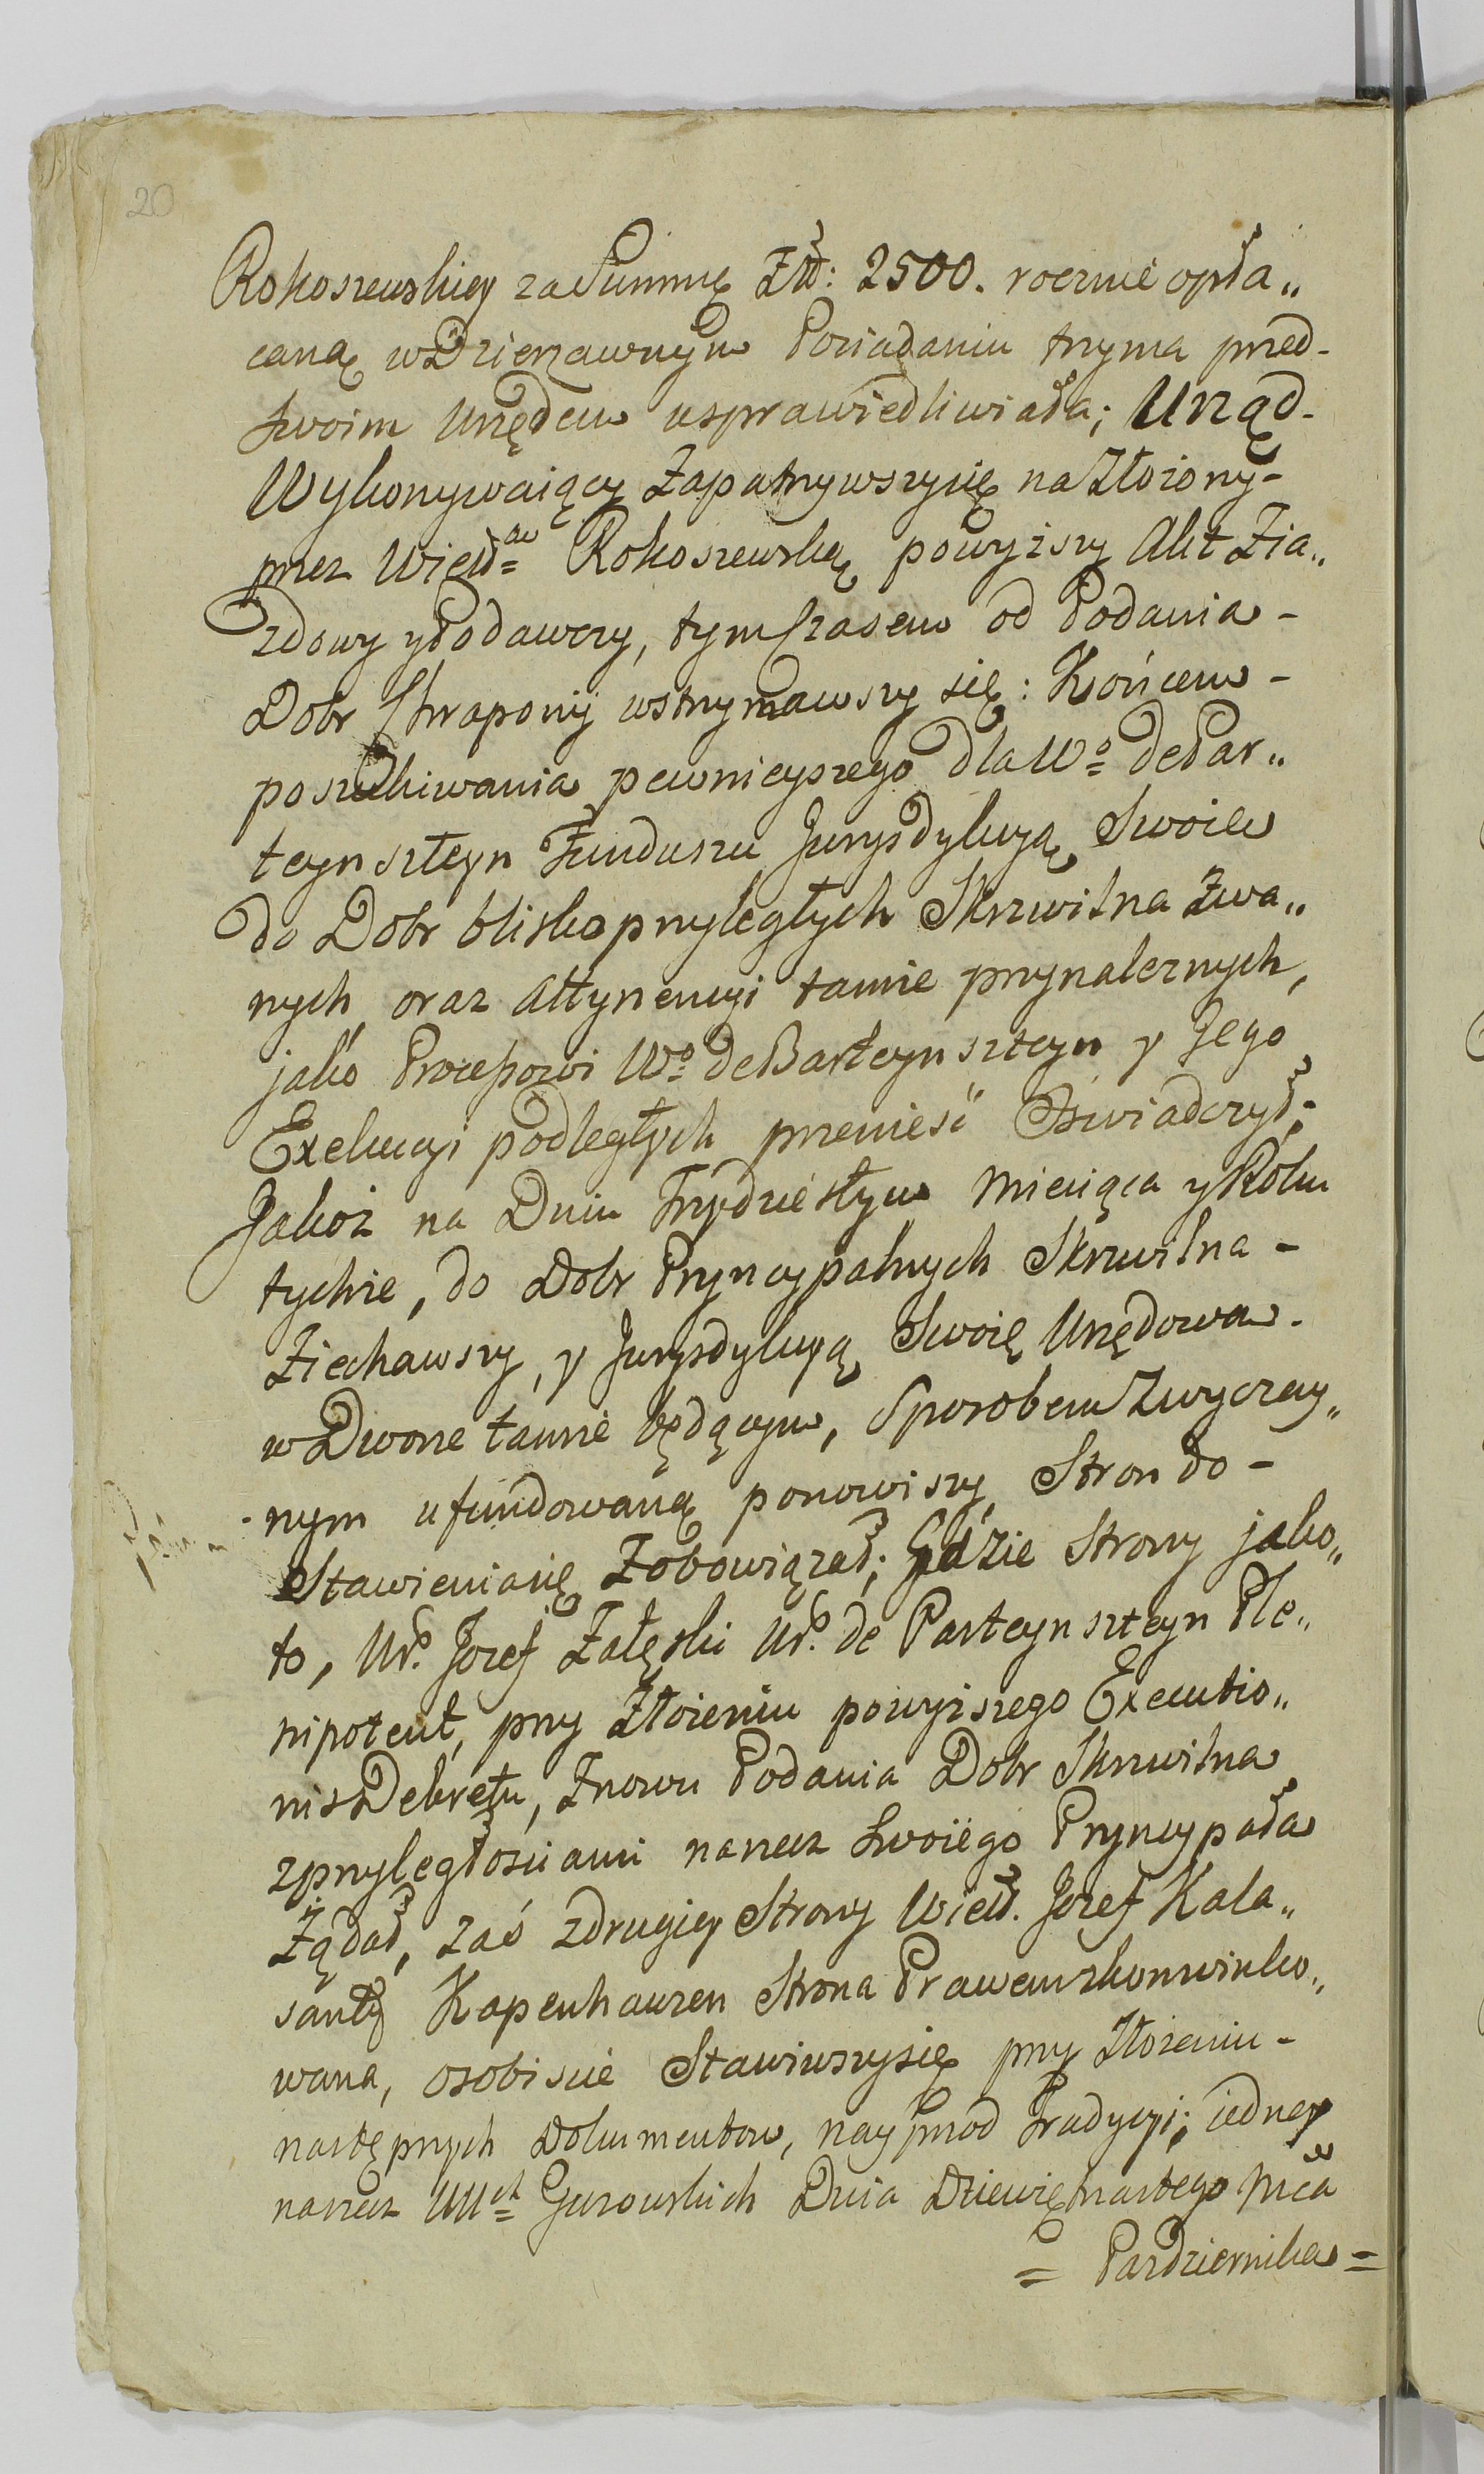 20
Rokoszewskiey za Summę Złł: 2500. rocznie opła„
caną w Dzierzawnym Posiadaniu trzyma przed-
swoim Urzędem usprawiedliwiała; Urząd-
Wykonywaiący Zapatrzywszysię na Złożony-
przez Wielł Rokoszewską powyższy Akt Zia„
zdowy y Podawczy, tym Czasem od Podania-
Dobr Chraponij wstrzymawszy się: Końcem-
poszukiwania pewnieyszego dla Wo= de Par„
teynszteyn Funduszu Jurysdykcyą Swoią
do Dobr blisko przyległych Skrzwilna Zwa„
nych, oraz Attynencyi tamże przynależnych,
jako Procesowi Wo= de Barteynszteyn y Jego
Exekucyi podległych przenieść Oświadczył;
Jakoż na Dniu Trzydziestym Miesiąca y Roku
tychże, do Dobr Pryncypalnych Skrzwilna-
Ziechawszy, y Jurysdykcyą Swoię Urzędową.
w Dworze tamże będącym, Sposobem Zwyczay„
nym ufundowaną ponowiwszy Stron do-
Stawieniasię Zobowiązał; Gdzie Strony jako„
to, Ur. Jozef Załęski Ur. de Parteynszteyn Ple„
nipotent, przy Złożeniu powyższego Executio„
nis Dekretu, Znowu Podania Dobr Skrzwilna
z przyległościami narzecz Swoiego Pryncypała
Żądał, zaś z drugiey Strony Wielł. Jozef Kala„
santy Kapenhauzen Strona Prawem zkonwinko„
wana, osobiscie Stawiwszysię przy Złożeniu-
następnych Dokumentow, nayprzod Tradycyi; iedney
narzecz WUch= Gurowskich Dnia Dziewiętnastego Mca
= Pazdziernika =